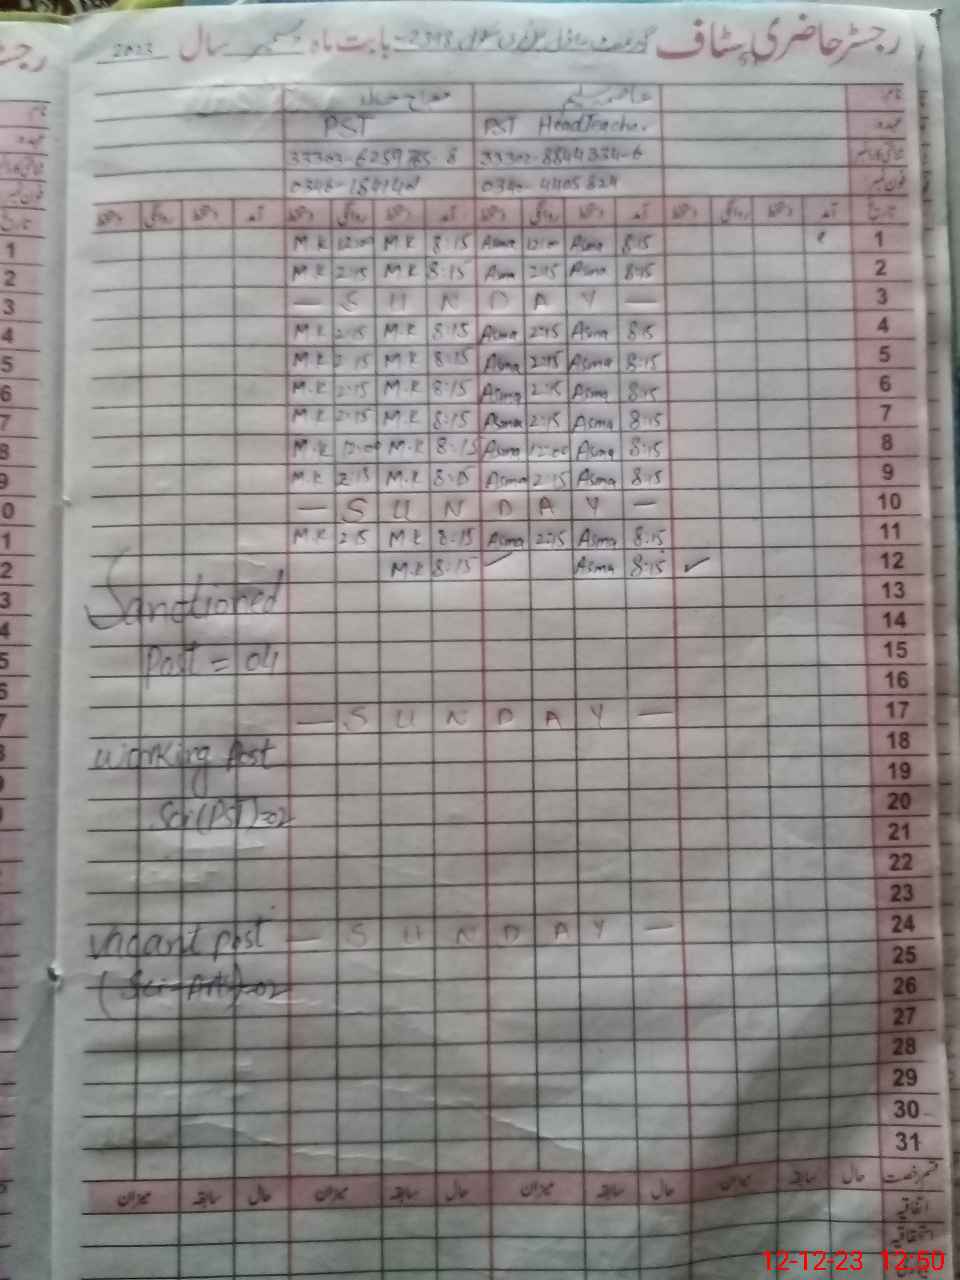 رجسٹر حاضری سٹاف بابت ماہ دسمبر سال 2023
نام عاصمہ سلیم
عہدہ PST HeadTeacher. PST
33302-8844334-6
فون نمبر 0346-4405824
تاریخ آمد دستخط روانگی دستخط آمد دستخط روانگی دستخط آمد دستخط روانگی دستخط آمد دستخط روانگی دستخط
M.K 12:00 M.K 8:15 Asma 12:00 Asma 8:15 1
M.K 2:15 M.K 8:15 Asma 2:15 Asma 8:15 2
— S U N D A Y — 3
M.K 2:15 M.K 8:15 Asma 2:15 Asma 8:15 4
M.K 2:15 M.K 8:15 Asma 2:15 Asma 8:15 5
M.K 2:15 M.K 8:15 Asma 2:15 Asma 8:15 6
M.K 2:15 M.K 8:15 Asma 2:15 Asma 8:15 7
M.K 12:00 M.K 8:15 Asma 12:00 Asma 8:15 8
M.K 2:15 M.K 8:15 Asma 2:15 Asma 8:15 9
— S U N D A Y — 10
M.K 2:15 M.K 8:15 Asma 2:15 Asma 8:15 11
M.K 8:15 ✓ Asma 8:15 ✓ 12
Sanctioned 13
14
Post = 04 15
16
— S U N D A Y — 17
working Post 18
19
20
Sci (PST)=02 21
22
23
Vacant post — S U N D A Y — 24
25
(Sci-Arts)=02 26
27
28
29
30
31
قسم رخصت حال سابقہ میزان حال سابقہ میزان حال سابقہ میزان حال سابقہ میزان
اتفاقیہ
استحقاقیہ
12-12-23 12:50